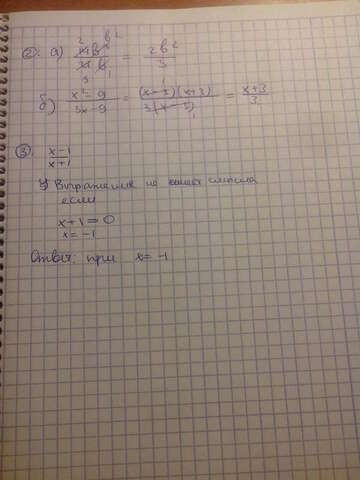 2. а) = 2b² / 3
б) x² - 9 / 3x - 9 = (x - 3)(x + 3) / 3(x - 3) = x + 3 / 3
3. x - 1 / x + 1
Выражение не имеет смысла
если
x + 1 = 0
x = -1
Ответ: при x = -1